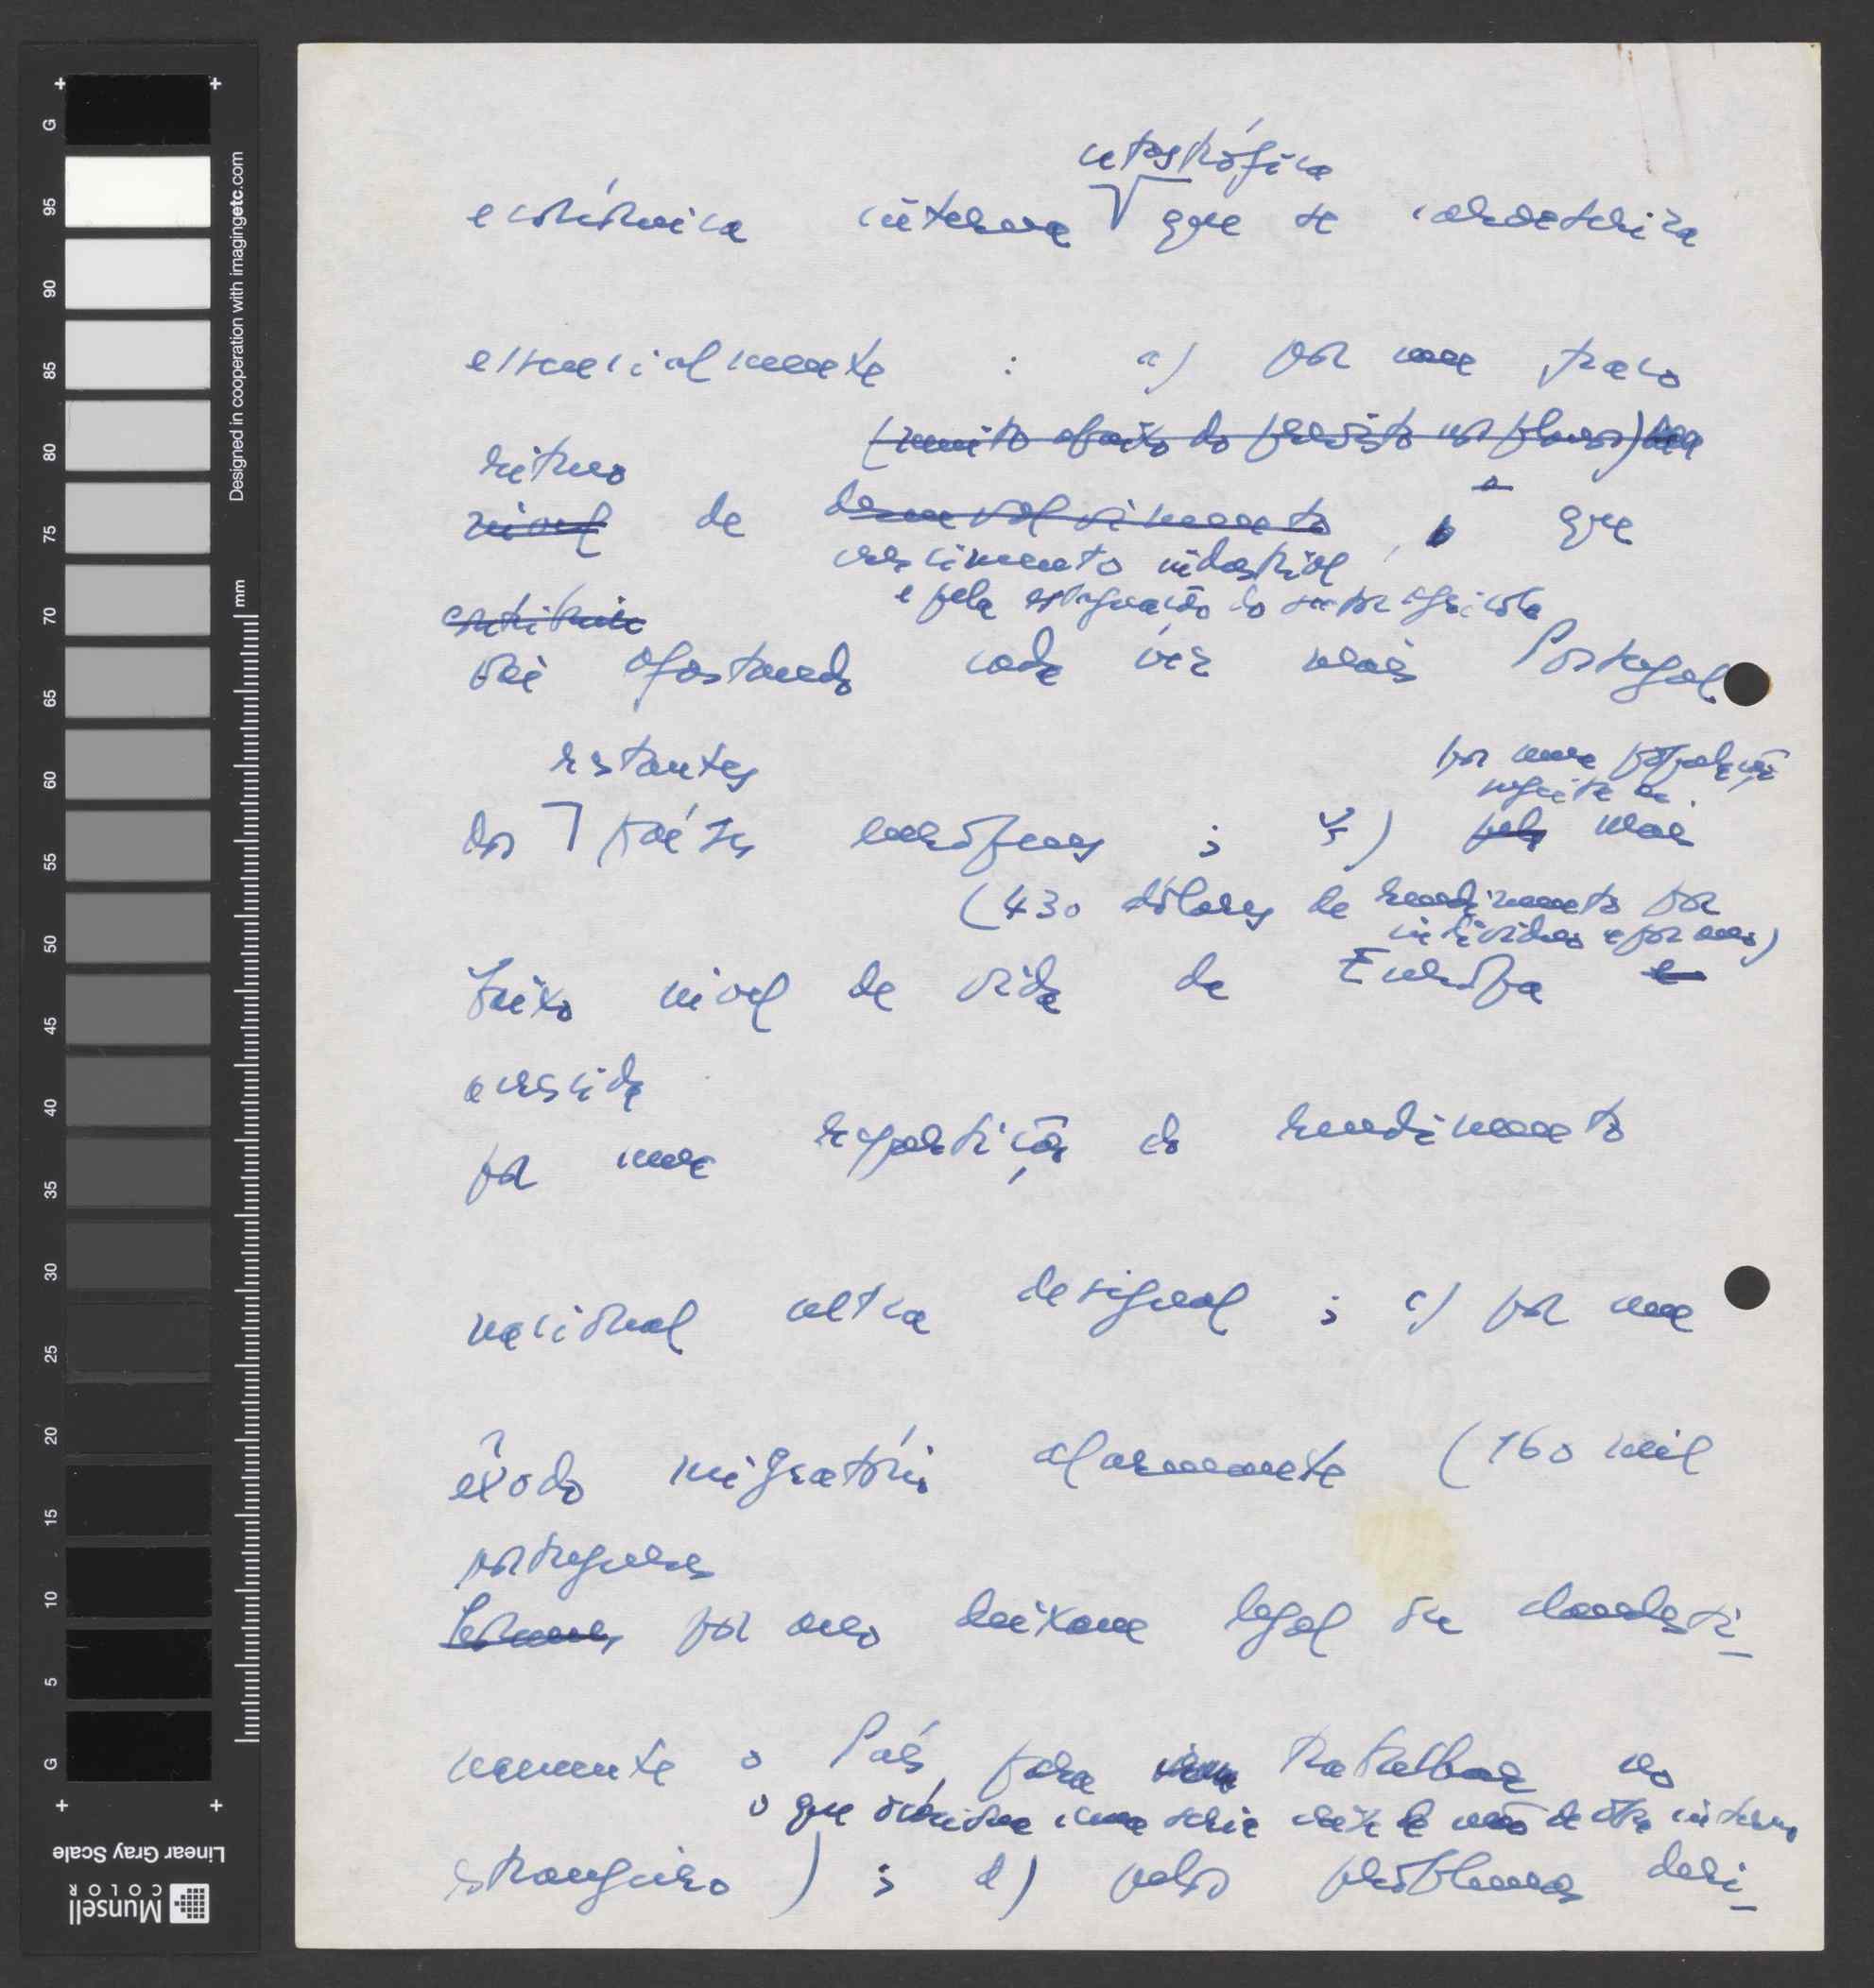 catastrófica
económica interna que se caracteriza
essencialmente : a) por um fraco
(muito abaixo do previsto nos planos)
ritmo
nível de desenvolvimento, o que
crescimento industrial
e pela estagnação do sector agrícola
contribui
vai afastando cada vez mais Portugal
restantes
por uma população
sujeita ao
dos países europeus ; b) pelo mais
(430 dólares de rendimento por
indivíduo e por ano)
baixo nível de vida da Europa e
acrescida
por uma repartição do rendimento
nacional ultra desigual ; c) por um
êxodo migratório alarmante (160 mil
portugueses
homens por ano deixam legal ou clandesti-
namente o País para trabalhar no
o que origina uma séria crise de mão de obra interna
estrangeiro) ; d) pelos problemas deri-
Designed in cooperation with imagingetc.com
mm
G 95 90 85 80 75 70 65 60 55 50 45 40 35 30 25 20 15 10 5 G
Linear Gray Scale
Munsell
COLOR